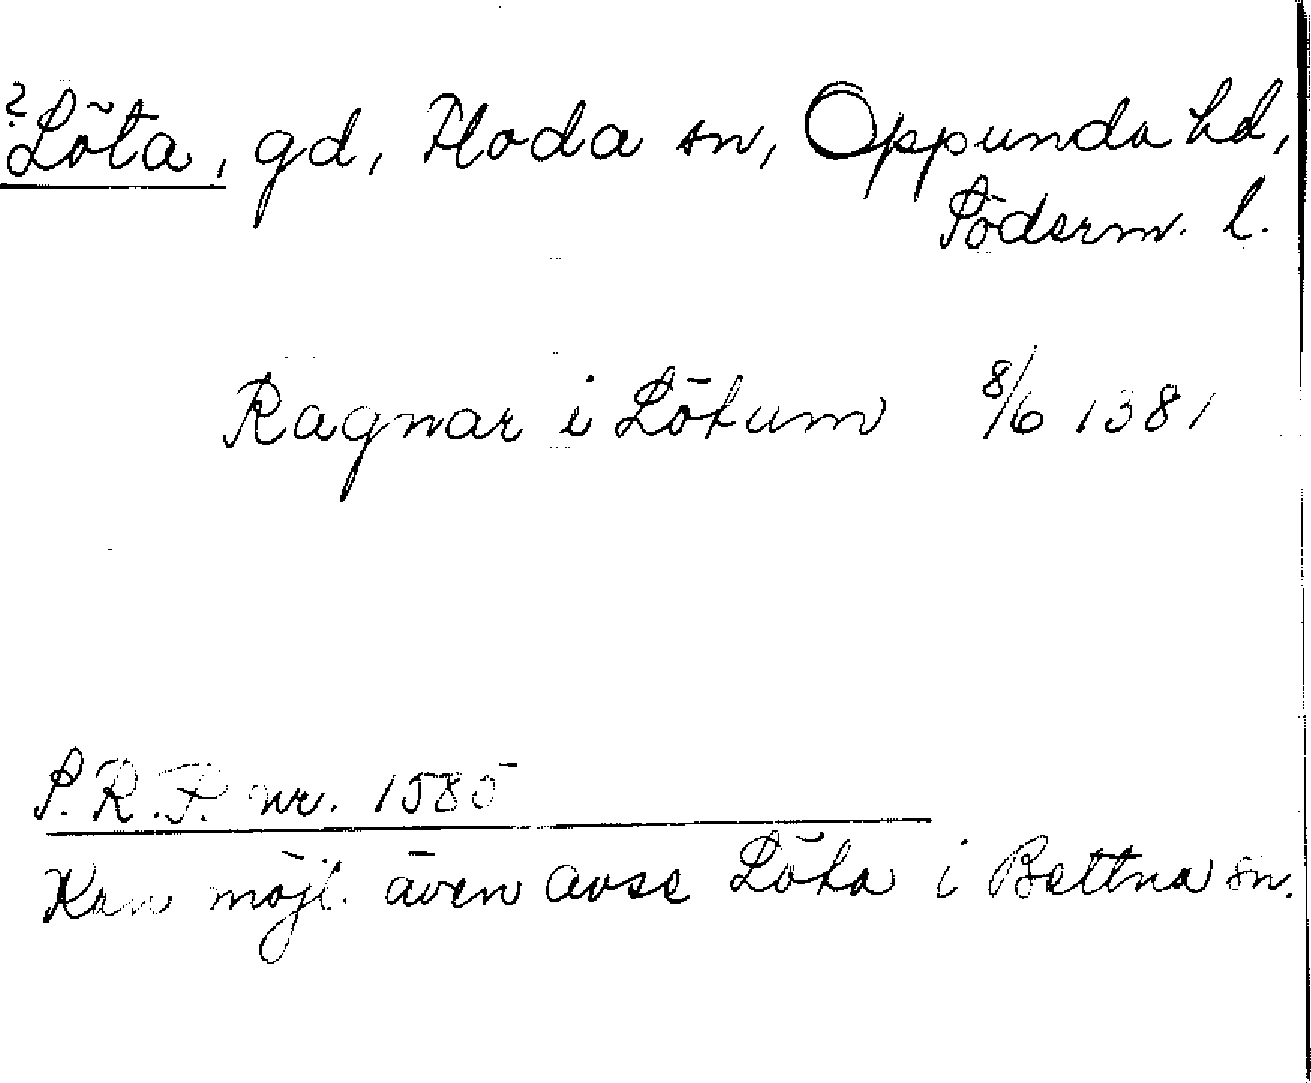 ? Löta, gd, Floda sn, Oppunda hd,
Söderm. l.
Ragnar i Løtum 8/6 1381
S.R.P. nr. 1585
Kan möjl. även avse Löta i Bettna sn.